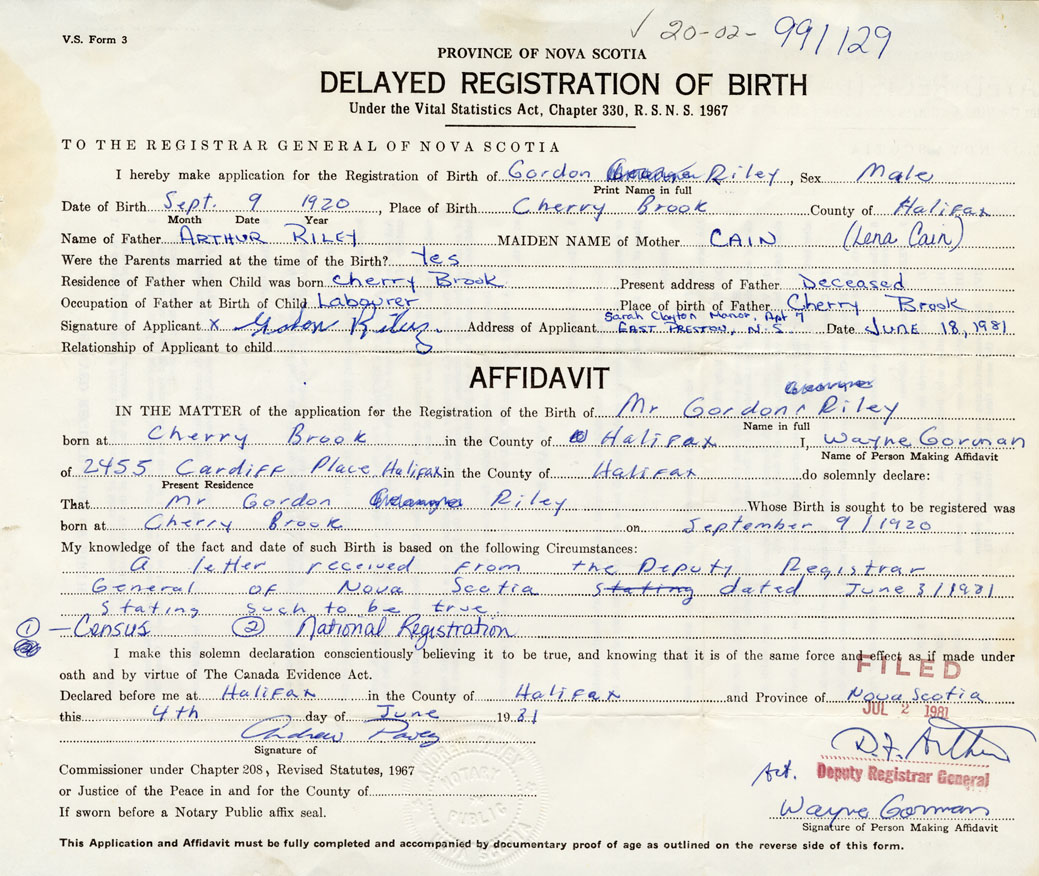 V.S. Form 3
✓ 20-02- 991129
PROVINCE OF NOVA SCOTIA
DELAYED REGISTRATION OF BIRTH
Under the Vital Statistics Act, Chapter 330, R. S. N. S. 1967
TO THE REGISTRAR GENERAL OF NOVA SCOTIA
I hereby make application for the Registration of Birth of Gordon Riley, Sex Male
Print Name in full
Date of Birth Sept. 9 1920, Place of Birth Cherry Brook County of Halifax
Month Date Year
Name of Father ARTHUR RILEY MAIDEN NAME of Mother CAIN (Lena Cain)
Were the Parents married at the time of the Birth? Yes
Residence of Father when Child was born Cherry Brook Present address of Father Deceased
Occupation of Father at Birth of Child Labourer Place of birth of Father Cherry Brook
Sarah Clayton Manor, Apt 7
Signature of Applicant x Gordon Riley Address of Applicant EAST PRESTON, N.S. Date JUNE 18, 1981
Relationship of Applicant to child
AFFIDAVIT
IN THE MATTER of the application for the Registration of the Birth of Mr Gordon Riley
Name in full
born at Cherry Brook in the County of Halifax I, Wayne Gorman
Name of Person Making Affidavit
of 2455 Cardiff Place Halifax in the County of Halifax do solemnly declare:
Present Residence
That Mr Gordon Riley Whose Birth is sought to be registered was
born at Cherry Brook on September 9/1920
My knowledge of the fact and date of such Birth is based on the following Circumstances:
A letter received from the Deputy Registrar
General of Nova Scotia stating dated June 3/1981
stating such to be true.
① - Census ② National Registration
I make this solemn declaration conscientiously believing it to be true, and knowing that it is of the same force and effect as if made under
oath and by virtue of The Canada Evidence Act.
FILED
Declared before me at Halifax in the County of Halifax and Province of Nova Scotia
JUL 2 1981
this 4th day of June 1981
Andrew Pavey
Signature of
D.F. Arthur
Commissioner under Chapter 208, Revised Statutes, 1967
Act. Deputy Registrar General
or Justice of the Peace in and for the County of
Wayne Gorman
If sworn before a Notary Public affix seal.
Signature of Person Making Affidavit
NOTARY
PUBLIC
This Application and Affidavit must be fully completed and accompanied by documentary proof of age as outlined on the reverse side of this form.